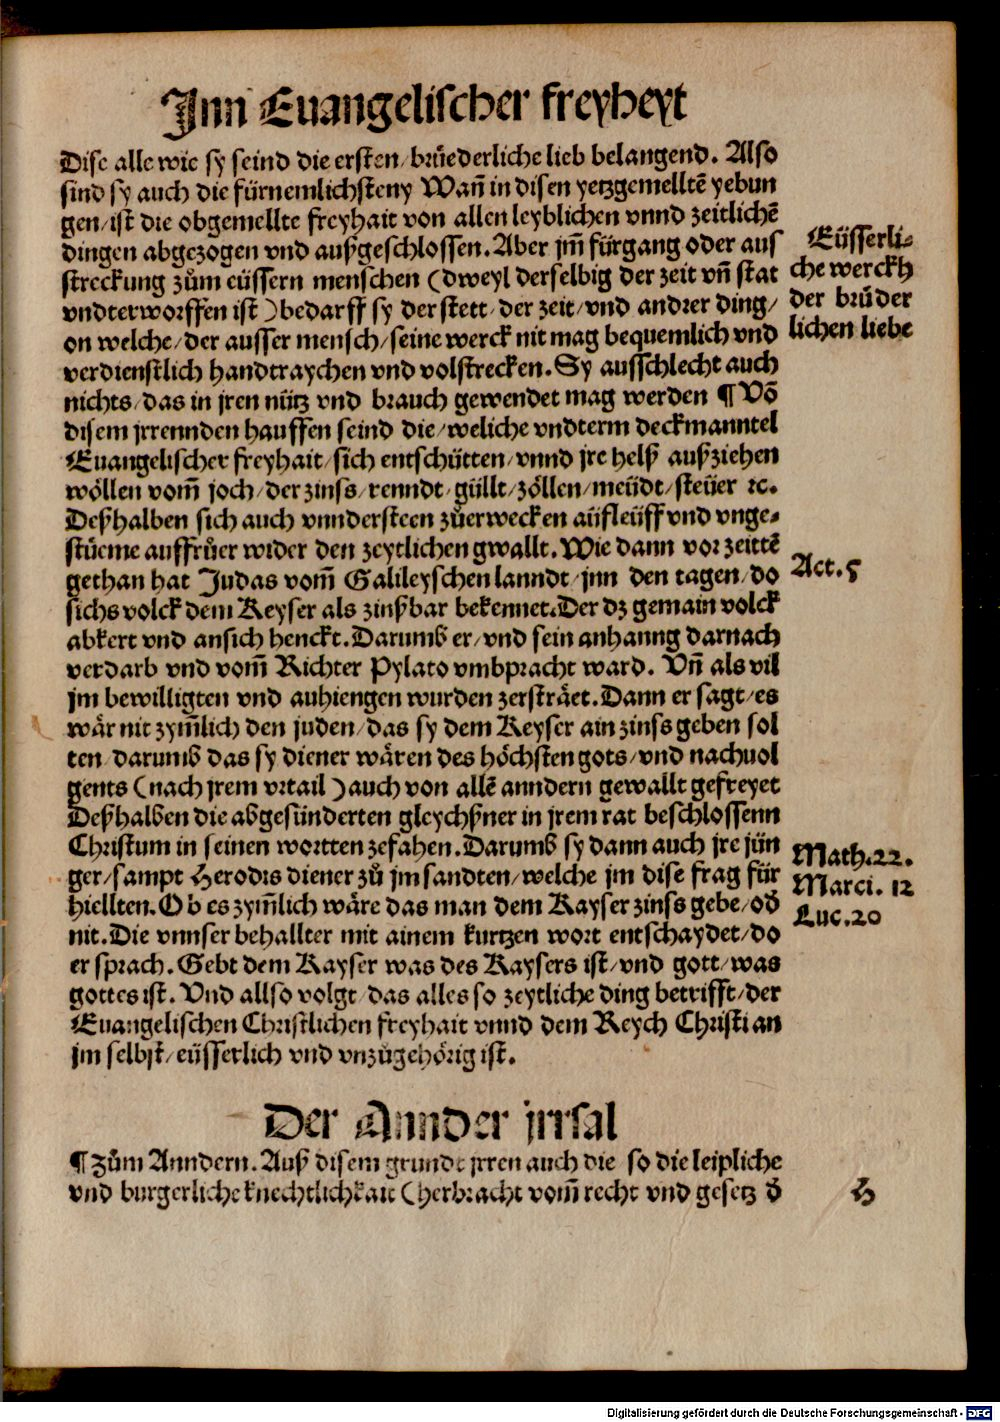 Jnn Euangelischer freyheyt
Dise alle wie sy seind die ersten/ brüederliche lieb belangend. Also
sind sy auch die fürnemlichsteny Wañ in disen yetzgemelltē yebun
gen/ ist die obgemellte freyhait von allen leyblichen vnnd zeitlichē
dingen abgezogen vnd außgeschlossen. Aber jm̄ fürgang oder aus
streckung zům eüssern menschen (dweyl derselbig der zeit vñ stat
vndterworffen ist) bedarff sy der stett/ der zeit/ vnd andrer ding/
on welche/ der ausser mensch/ seine werck nit mag bequemlich vnd
verdienstlich handtraychen vnd volstrecken. Sy ausschlecht auch
nichts/ das in jren nütz vnd brauch gewendet mag werden ¶ Võ
disem jrrennden hauffen seind die/ weliche vndterm deckmanntel
Euangelischer freyhait/ sich entschütten/ vnnd jre helß außziehen
wöllen vom̄ joch/ der zinss/ renndt/ güllt/ zöllen/ meüdt/ steüer ꝛc.
Deßhalben sich auch vnndersteen zůerwecken aüfleüff vnd vnge⸗
stüeme auffrůer wider den zeytlichen gwallt. Wie dann vor zeittē
gethan hat Judas vom̄ Galileyschen lanndt/ jnn den tagen/ do
sichs volck dem Keyser als zinßbar bekennet. Der dz gemain volck
abkert vnd ansich henckt. Darumb er/ vnd sein anhanng darnach
verdarb vnd vom̄ Richter Pylato vmbpracht ward. Vñ als vil
jm bewilligten vnd anhiengen wurden zersträet. Dann er sagt/ es
wär nit zym̄lich den juden/ das sy dem Keyser ain zinss geben sol
ten/ darumb das sy diener wären des höchsten gots/ vnd nachuol
gents (nach jrem vrtail) auch von allē anndern gewallt gefreyet
Deßhalben die abgesünderten gleychßner in jrem rat beschlossenn
Christum in seinen wortten zefahen. Darumb sy dann auch jre jün
ger/ sampt Herodis diener zů jm sandten/ welche jm dise frag für
hiellten. Ob es zym̄lich wäre das man dem Kayser zinss gebe/ oð
nit. Die vnnser behallter mit ainem kurtzen wort entschaydet/ do
er sprach. Gebt dem Kayser was des Kaysers ist/ vnd gott/ was
gottes ist. Vnd allso volgt/ das alles so zeytliche ding betrifft/ der
Euangelischen Christlichen freyhait vnnd dem Reych Christi an
jm selbst/ eüsserlich vnd vnzůgehörig ist.
Eüsserli⸗
che werckh
der brůder
lichen liebe
Act. 5
Math. 22.
Marci. 12
Luc. 20
Der Annder jrrsal
¶ Zům Anndern. Auß disem grunde jrren auch die so die leipliche
vnd burgerliche knechtlichkait (herbracht vom̄ recht vnd gesetz ð
H
Digitalisierung gefördert durch die Deutsche Forschungsgemeinschaft - DFG